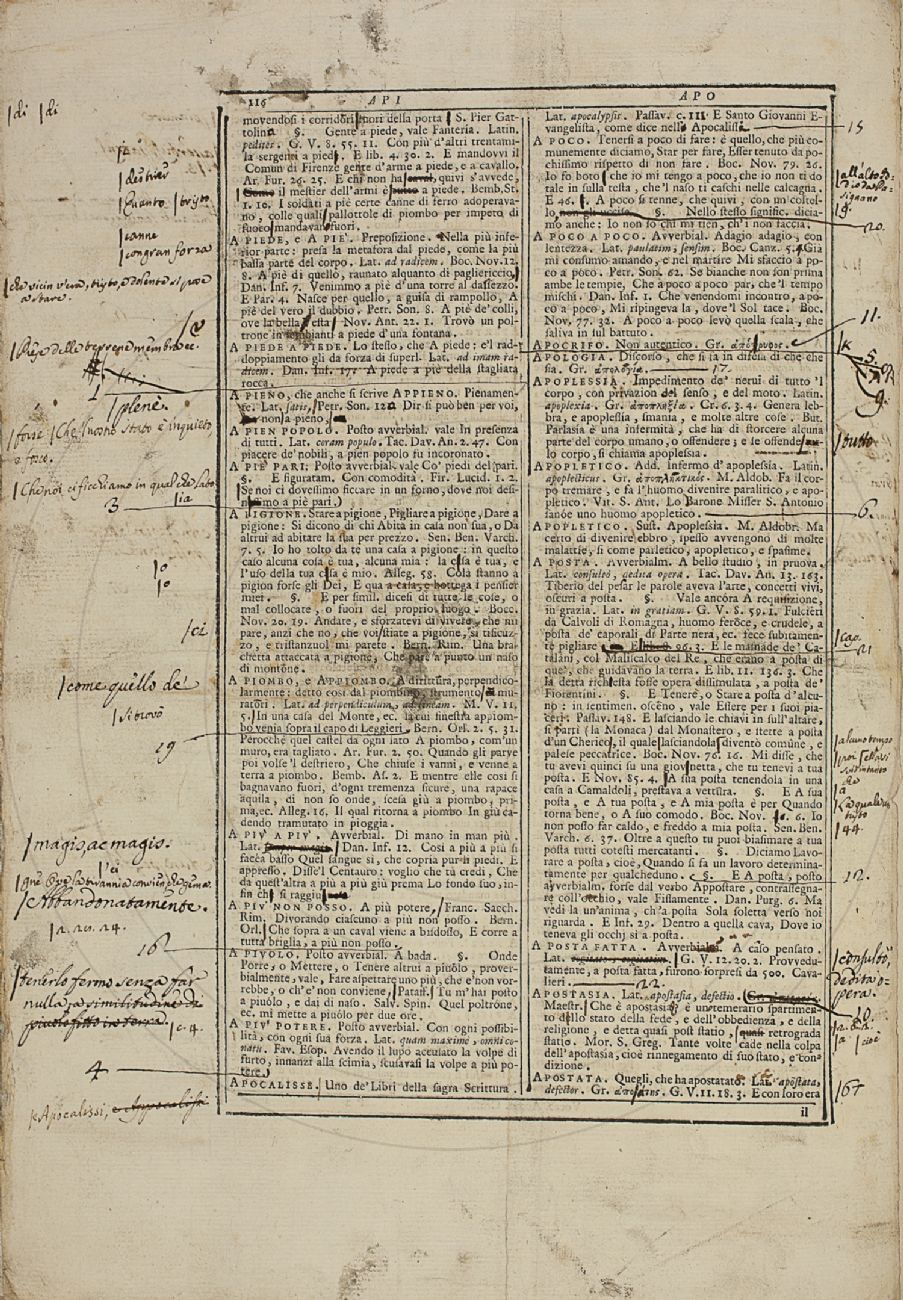 116 API
movendosi i corridori fuori della porta S. Pier Gat-
tolina. §. Gente a piede, vale Fanteria. Latin.
pedites. G. V. 8. 55. 11. Con più d'altri trentami-
la sergenti a piedi. E lib. 4. 30. 2. E mandovvi il
Comun di Firenze gente d'arme a piede, e a cavallo.
Ar. Fur. 26. 25. E chi non ha, quivi s'avvede,
il mestier dell'armi è a piede. Bemb. St.
1. 10. I soldati a piè certe canne di ferro adoperava-
no, colle quali pallottole di piombo per impeto di
fuoco mandavan fuori.
A PIEDE, e A PIE'. Preposizione. Nella più infe-
rior parte: presa la metafora dal piede, come la più
bassa parte del corpo. Lat. ad radicem. Boc. Nov. 12.
8. A piè di quello, raunato alquanto di pagliericcio,
Dan. Inf. 7. Venimmo a piè d'una torre al dassezzo.
E Par. 4. Nasce per quello, a guisa di rampollo, A
piè del vero il dubbio. Petr. Son. 8. A piè de' colli,
ove la bella vesta. Nov. Ant. 22. 1. Trovò un pol-
trone in sembianti a piede d'una fontana.
A PIEDE A PIEDE. Lo stesso, che A piede: e'l rad-
doppiamento gli da forza di superl. Lat. ad imam ra-
dicem. Dan. Inf. 17. A piede a piè della stagliata
rocca.
A PIENO, che anche si scrive APPIENO. Pienamen-
te. Lat. satis, Petr. Son. 120. Dir si può ben per voi,
non a pieno,
A PIEN POPOLO. Posto avverbial. vale In presenza
di tutti. Lat. coram populo. Tac. Dav. An. 2. 47. Con
piacere de' nobili, a pien popolo fu incoronato.
A PIE' PARI. Posto avverbial. vale Co' piedi del pari.
§. E figuratam. Con comodità, Fir. Lucid. 1. 2.
Se noi ci dovessimo ficcare in un forno, dove noi desi-
niamo a piè pari.
A PIGIONE. Stare a pigione, Pigliare a pigione, Dare a
pigione: Si dicono di chi Abita in casa non sua, o Da
altrui ad abitare la sua per prezzo. Sen. Ben. Varch.
7. 5. Io ho tolto da te una casa a pigione: in questo
caso alcuna cosa è tua, alcuna mia: la cosa è tua, e
l'uso della tua cosa è mio. Alleg. 58. Colà stanno a
pigion forse gli Dei, E qua a casa, e bottega i pensier
miei. §. E per simil. dicesi di tutte le cose, o
mal collocate, o fuori del proprio luogo. Bocc.
Nov. 20. 19. Andate, e sforzatevi di vivere, che mi
pare, anzi che no, che voi stiate a pigione, sì tisicuz-
zo, e tristanzuol mi parete. Bern. Rim. Una bra-
chetta attaccata a pigione, Che pare a punto un naso
di montone.
A PIOMBO, e APPIOMBO. A dirittura, perpendico-
larmente: detto così dal piombino, strumento mu-
ratori. Lat. ad perpendiculum, ad lineam. M. V. 11,
5. In una casa del Monte, ec. la cui finestra appiom-
bo venia sopra il capo di Leggieri, Bern. Orl. 2. 5. 31.
Perocchè quel castel da ogni lato A piombo, com'un
muro, era tagliato. Ar. Fur. 2. 50. Quando gli parve
poi volse 'l destriero, Che chiuse i vanni, e venne a
terra a piombo. Bemb. As. 2. E mentre elle così si
bagnavano fuori, d'ogni tremenza sicure, una rapace
aquila, di non so onde, scesa giù a piombo, pri-
ma, ec. Alleg. 16. Il qual ritorna a piombo In giù ca-
dendo tramutato in pioggia.
A PIV' A PIV'. Avverbial. Di mano in man più.
Lat. Dan. Inf. 12. Così a più a più si
facea basso Quel sangue sì, che copria pur li piedi. E
appresso. Disse'l Centauro: voglio che tu credi, Che
da quest'altra a più a più giù prema Lo fondo suo, in-
fin ch' si raggiu
A PIV' NON POSSO. A più potere, Franc. Sacch.
Rim. Divorando ciascuno a più non posso. Bern.
Orl. Che sopra a un caval viene a bisdosso, E corre a
tutta briglia, a più non posso.
A PIVOLO. Posto avverbial. A bada. §. Onde
Porre, o Mettere, o Tenere altrui a piuòlo, prover-
bialmente, vale, Fare aspettare uno più, che e'non vor-
rebbe, o ch'e'non conviene, Pataff. Tu m'hai posto
a piuòlo, e dai di naso. Salv. Spin. Quel poltrone,
ec. mi mette a piuòlo per due ore.
A PIV' POTERE. Posto avverbial. Con ogni possibi-
lità, con ogni sua forza. Lat. quam maximè, omni co-
natu. Fav. Esop. Avendo il lupo accusato la volpe di
furto, innanzi alla scimia, scusavasi la volpe a più po-
tere.
APOCALISSE. Uno de' Libri della sagra Scrittura.
APO
Lat. apocalypsis. Passav. c. 111. E Santo Giovanni E-
vangelista, come dice nello Apocalissi
A POCO. Tenersi a poco di fare: è quello, che più co-
munemente diciamo, Star per fare, Esser tenuto da po-
chissimo rispetto di non fare. Boc. Nov. 79. 26.
Io fo boto che io mi tengo a poco, che io non ti do
tale in sulla testa, che'l naso ti caschi nelle calcagna.
E 46. A poco si tenne, che quivi, con un coltel-
lo, non gli uccise. §. Nello stesso signific. dicia-
mo anche: Io non so chi mi tien, ch'i non faccia.
A POCO A POCO. Avverbial. Adagio adagio, con
lentezza. Lat. paulatim, sensim. Boc. Canz. 5. 4. Già
mi consumo amando, e nel martire Mi sfaccio a po-
co a poco. Petr. Son. 62. Se bianche non son prima
ambe le tempie, Che a poco a poco par, che'l tempo
mischi. Dan. Inf. 1. Che venendomi incontro, a po-
co a poco, Mi ripingeva la, dove'l Sol tace. Boc.
Nov. 77. 32. A poco a poco levò quella scala, che
saliva in sul battuto.
APOCRIFO. Non autentico. Gr. ἀπόκρυφος.
APOLOGIA. Discorso, che si fa in difesa di che che
sia. Gr. ἀπολογία.
APOPLESSIA. Impedimento de' nervi di tutto 'l
corpo, con privazion del senso, e del moto. Latin.
apoplexia. Gr. ἀποπληξία. Cr. 6. 3. 4. Genera lebra,
e apoplessia, smania, e molte altre cose. But.
Parlasia è una infermità, che ha di storcere alcuna
parte del corpo umano, o offendere; e se offende
lo corpo, si chiama apoplessia.
APOPLETICO. Add. infermo d'apoplessia. Latin.
apoplecticus. Gr. ἀποπληκτικός. M. Aldob. Fa il cor-
po tremare, e fa l'huomo divenire paralitico, e apo-
pletico. Vit. S. Ant. Lo Barone Misser S. Antonio
sanòe uno huomo apopletico.
APOPLETICO. Sust. Apoplessia. M. Aldobr. Ma
certo di divenire ebbro, spesso avvengono di molte
malattie, sì come parletico, apopletico, e spasime.
A POSTA. Avverbialm. A bello studio, in pruova.
Lat. consultò, dedita opera. Tac. Dav. An. 13. 163.
Tiberio del pesar le parole aveva l'arte, concetti vivi,
oscuri a posta. §. Vale ancora A requisizione,
in grazia. Lat. in gratiam. G. V. 8. 59. 1. Fulcieri
da Calvoli di Romagna, huomo feroce, e crudele, a
posta de' caporali di Parte nera, ec. fece subitamen-
te pigliare E lib. 96. 3. E le masnade de' Ca-
talani, col Maliscalco del Re, che erano a posta di
que', che guidavano la terra. E lib. 11. 136. 3. Che
la detta richesta fosse opera dissimulata, a posta de'
Fiorentini. §. E Tenere, o Stare a posta d'alcu-
no: in sentimen. osceno, vale Essere per i suoi pia-
ceri. Passav. 148. E lasciando le chiavi in sull'altare,
si partì (la Monaca) dal Monastero, e stette a posta
d'un Cherico, il quale lasciandola diventò comùne, e
palese peccatrice. Boc. Nov. 76. 16. Mi disse, che
tu avevi quinci su una giovinetta, che tu tenevi a tua
posta. E Nov. 85. 4. A sua posta tenendola in una
casa a Camaldoli, prestava a vettura. §. E A sua
posta, e A tua posta, e A mia posta è per Quando
torna bene, o A suo comodo. Boc. Nov. 6. 6. Io
non posso far caldo, e freddo a mia posta. Sen. Ben.
Varch. 6. 37. Oltre a questo tu puoi biasimare a tua
posta tutti cotesti mercatanti. §. Diciamo Lavo-
rare a posta, cioè, Quando si fa un lavoro determina-
tamente per qualcheduno. §. E A posta, posto
avverbialm. forse dal verbo Appostare, contrassegna-
re coll'occhio, vale Fissamente. Dan. Purg. 6. Ma
vedi la un'anima, ch'a posta Sola soletta verso noi
riguarda. E Inf. 29. Dentro a quella cava, Dove io
teneva gli occhi sì a posta.
A POSTA FATTA. Avverbial. A caso pensato.
Lat. G. V. 12. 20. 2. Provvedu-
tamente, a posta fatta, furono sorpresi da 500. Cava-
lieri.
APOSTASIA. Lat. apostasia, defectio.
Maestr. Che è apostasia? è un temerario spartimen-
to dello stato della fede, e dell'obbedienza, e della
religione, e detta quasi post statio, retrograda
statio. Mor. S. Greg. Tante volte cade nella colpa
dell'apostasia, cioè rinnegamento di suo stato, e con-
dizione.
APOSTATA. Quegli, che ha apostatato. Lat. apostata,
defector. Gr. ἀποστάτης. G. V. 11. 18. 3. E con loro era
il
di di
destrier
Quanto tristo
canne
con gran forza
plene
3
come quello de'
Si trovò
19
magis, ac magis.
Abbandonatamente.
162
c. 4.
4
Apocalissi,
15
20.
11.
17
9.
tutto
6
Cap.
21
44.
12.
consultò,
dedita o-
pera.
22
10.
cioè
167